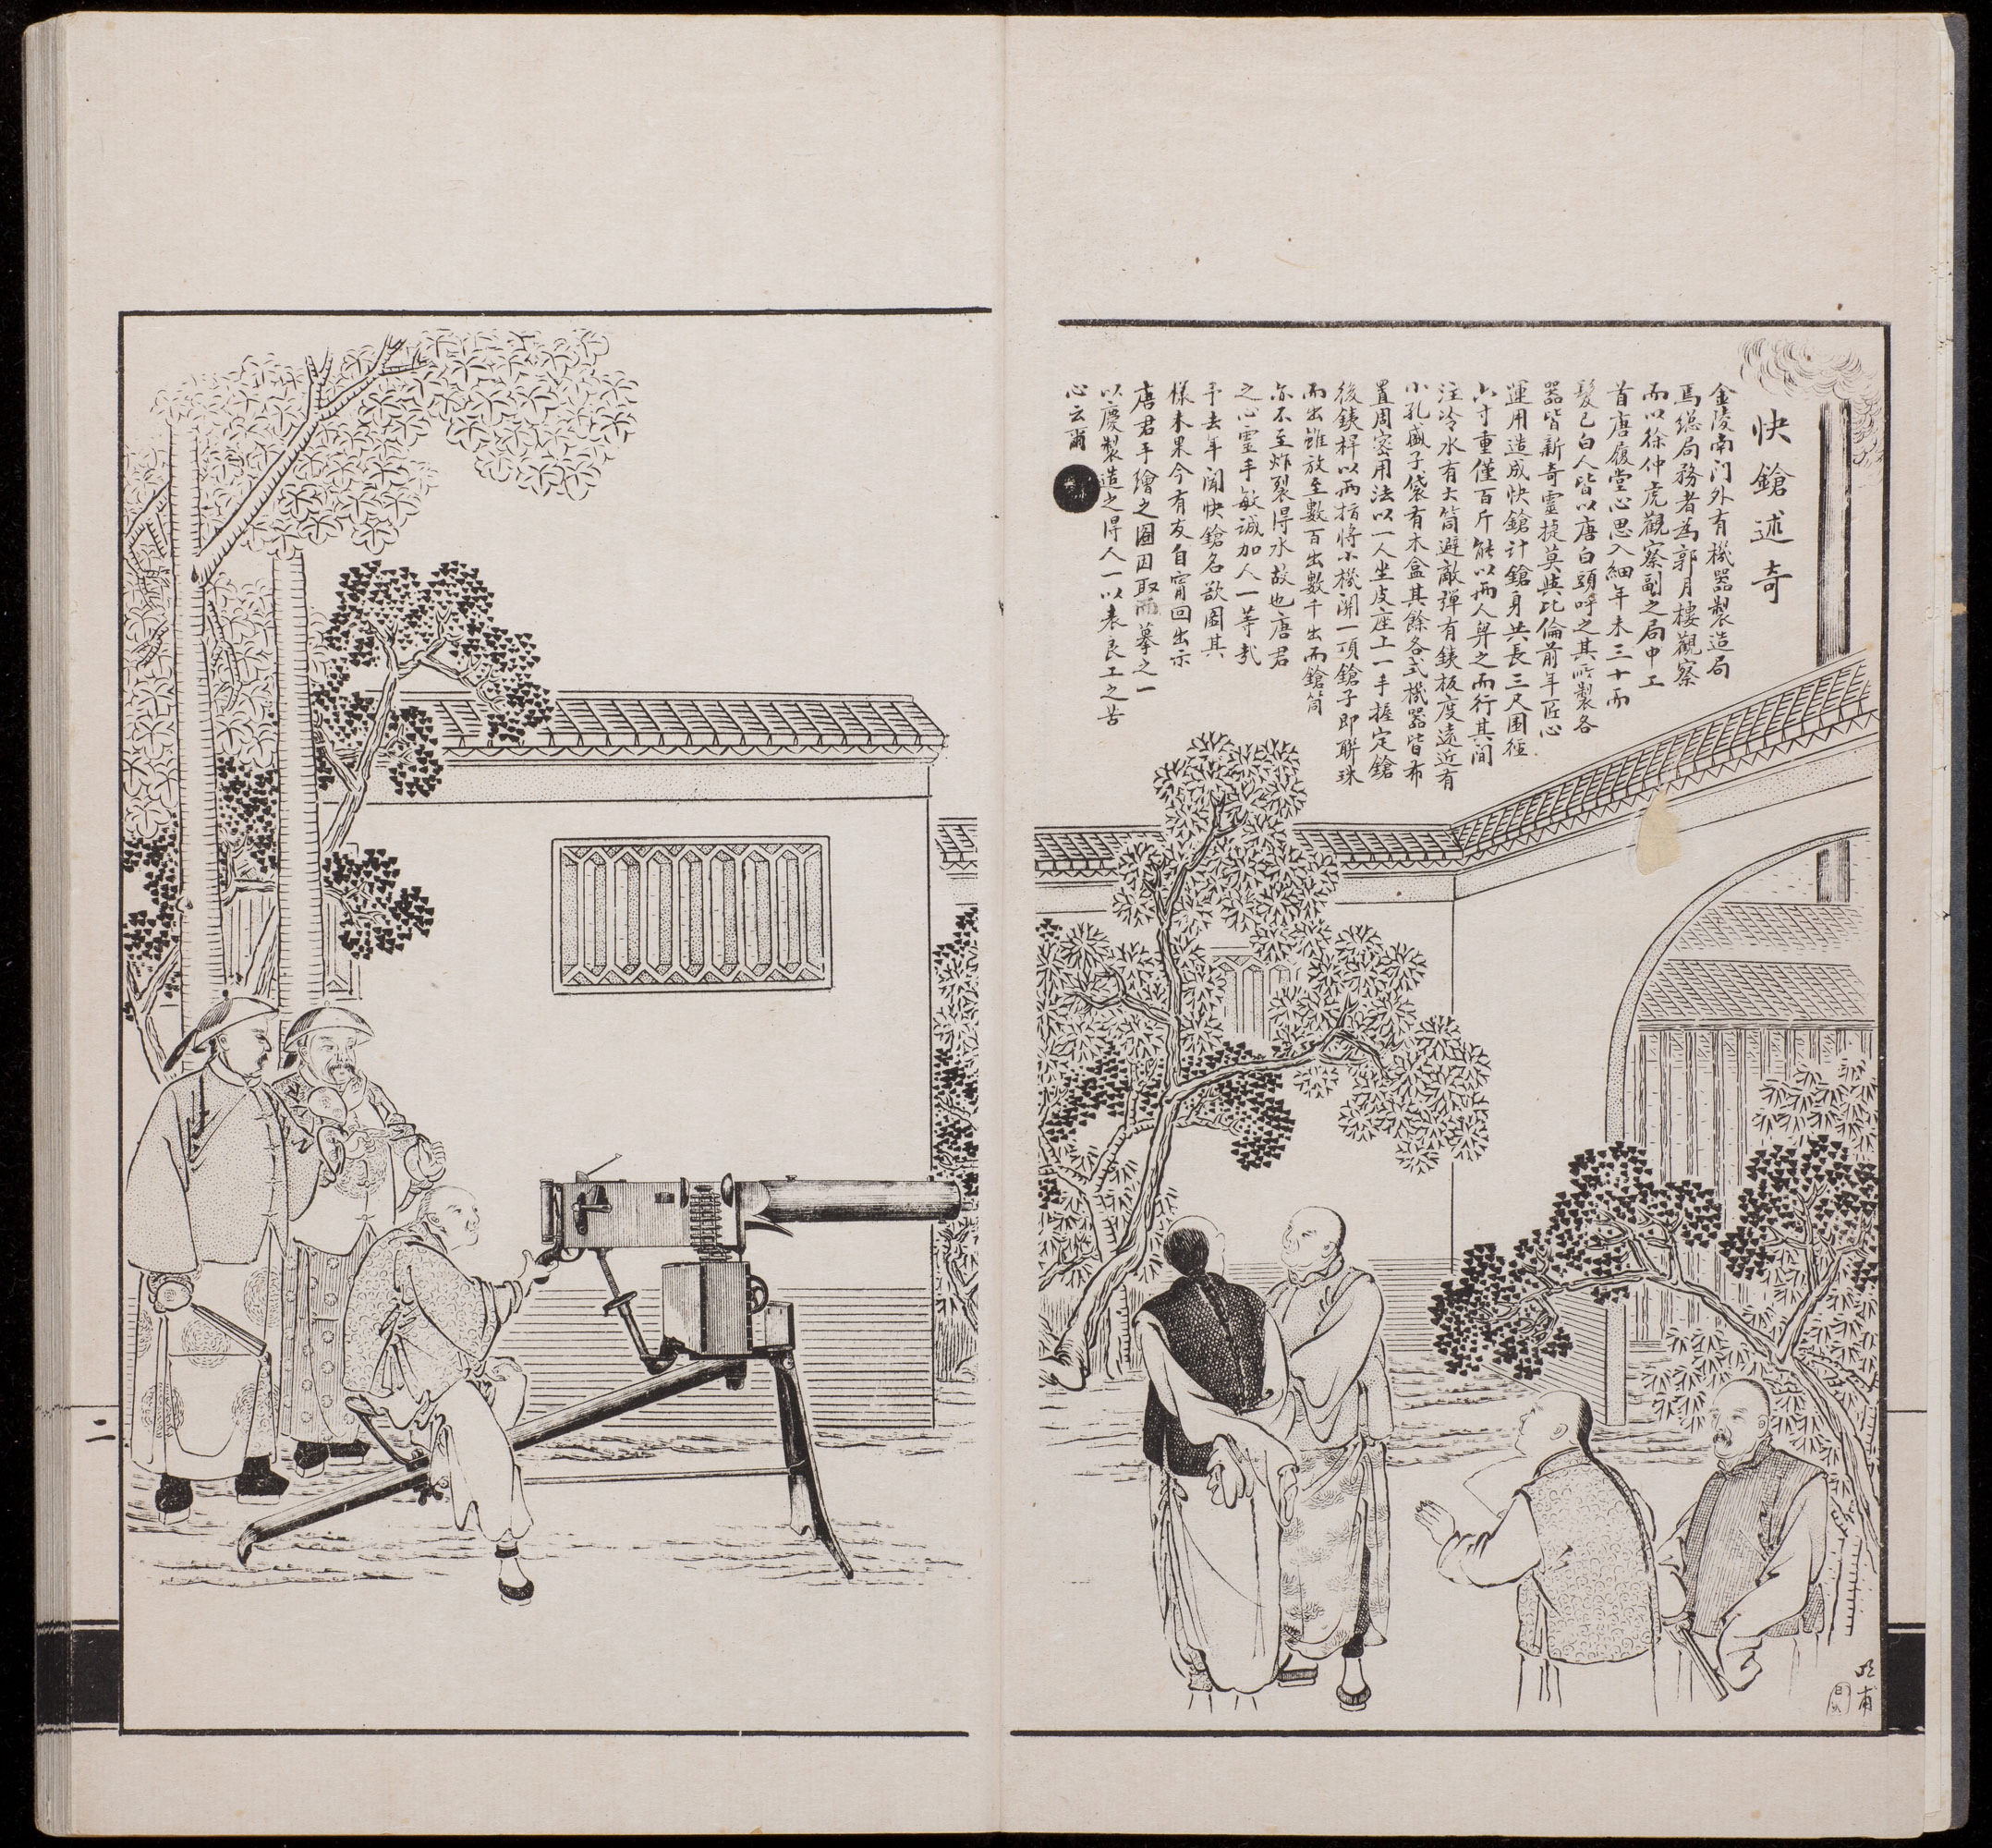 快鎗述奇
金陵南门外有機器製造局
焉總局務者為郭月樓觀察
而以徐仲虎觀察副之局中工
首唐履堂心思入細年未三十而
髮已白人皆以唐白頭呼之其所製各
器皆新奇靈捷莫與比倫前年匠心
運用造成快鎗計鎗身共長三尺圍徑
六寸重僅百斤能以兩人舁之而行其間
注冷水有大筒避敵彈有鐵板度遠近有
小孔盛子袋有木盒其餘各式機器皆布
置周密用法以一人坐皮座上一手握定鎗
後鐵桿以兩指將小機開一項鎗子即聯珠
而出雖放至數百出數千出而鎗筒
亦不至炸裂得水故也唐君
之心靈手敏誠加人一等哉
予去年闻快鎗名欲圖其
樣未果今有友自甯回出示
唐君手繪之圖因取而摹之一
以慶製造之得人一以表良工之苦
心云爾
二
明甫